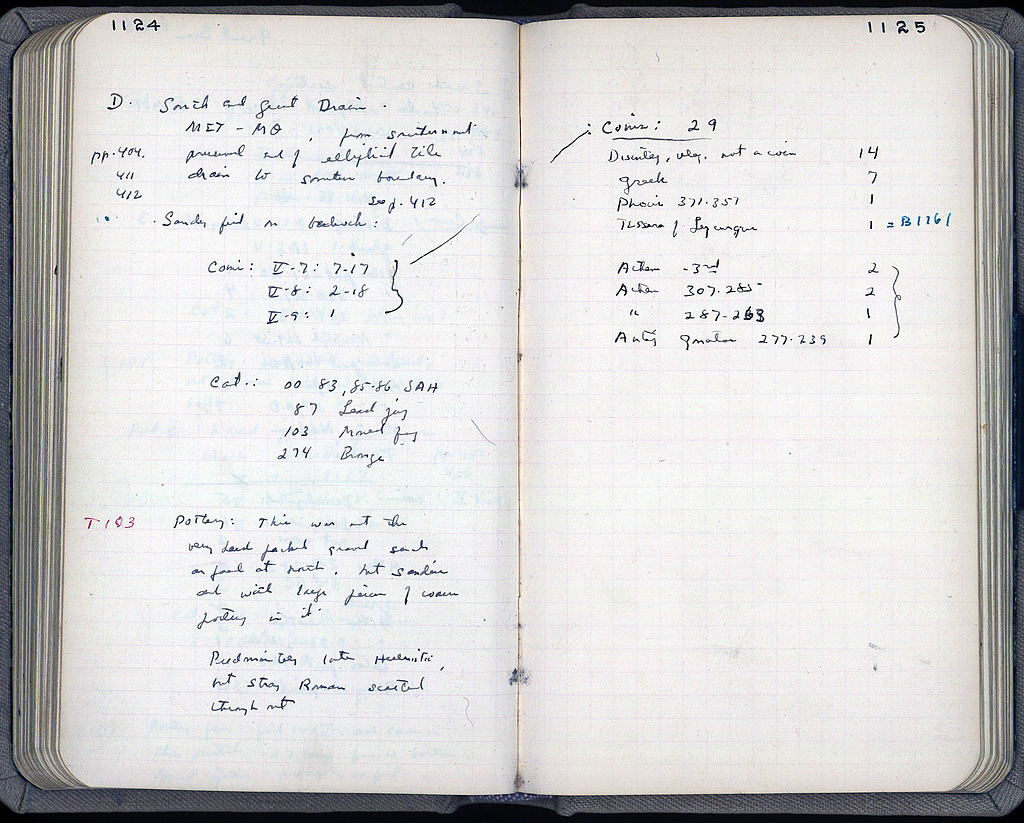 1124
D. South end Great Drain.
MET - MQ, from southernmost
pp. 404. preserved end of elliptical tile
411 drain to southern boundary.
412 See p. 412
Sandy fill on bedrock:
Coins: II-7: 7-17
II-8: 2-18
II-9: 1
Cat.: 00 83, 85-86 SAH
87 Lead
103
274 Bronze
T 103 Pottery: This was not the
very hard packed gravel
as found at north, but sandier
and with large pieces of coarse
pottery in it.
Predominantly late Hellenistic,
but stray Roman scattered
throughout
1125
: Coins: 29
Disinteg, illeg, not a coin 14
Greek 7
Phocis 371-357 1
Tessera / 1 = B1161
Athen -3rd 2
Athen 307-285 2
" 287-263 1
Antig Gonatas 277-239 1